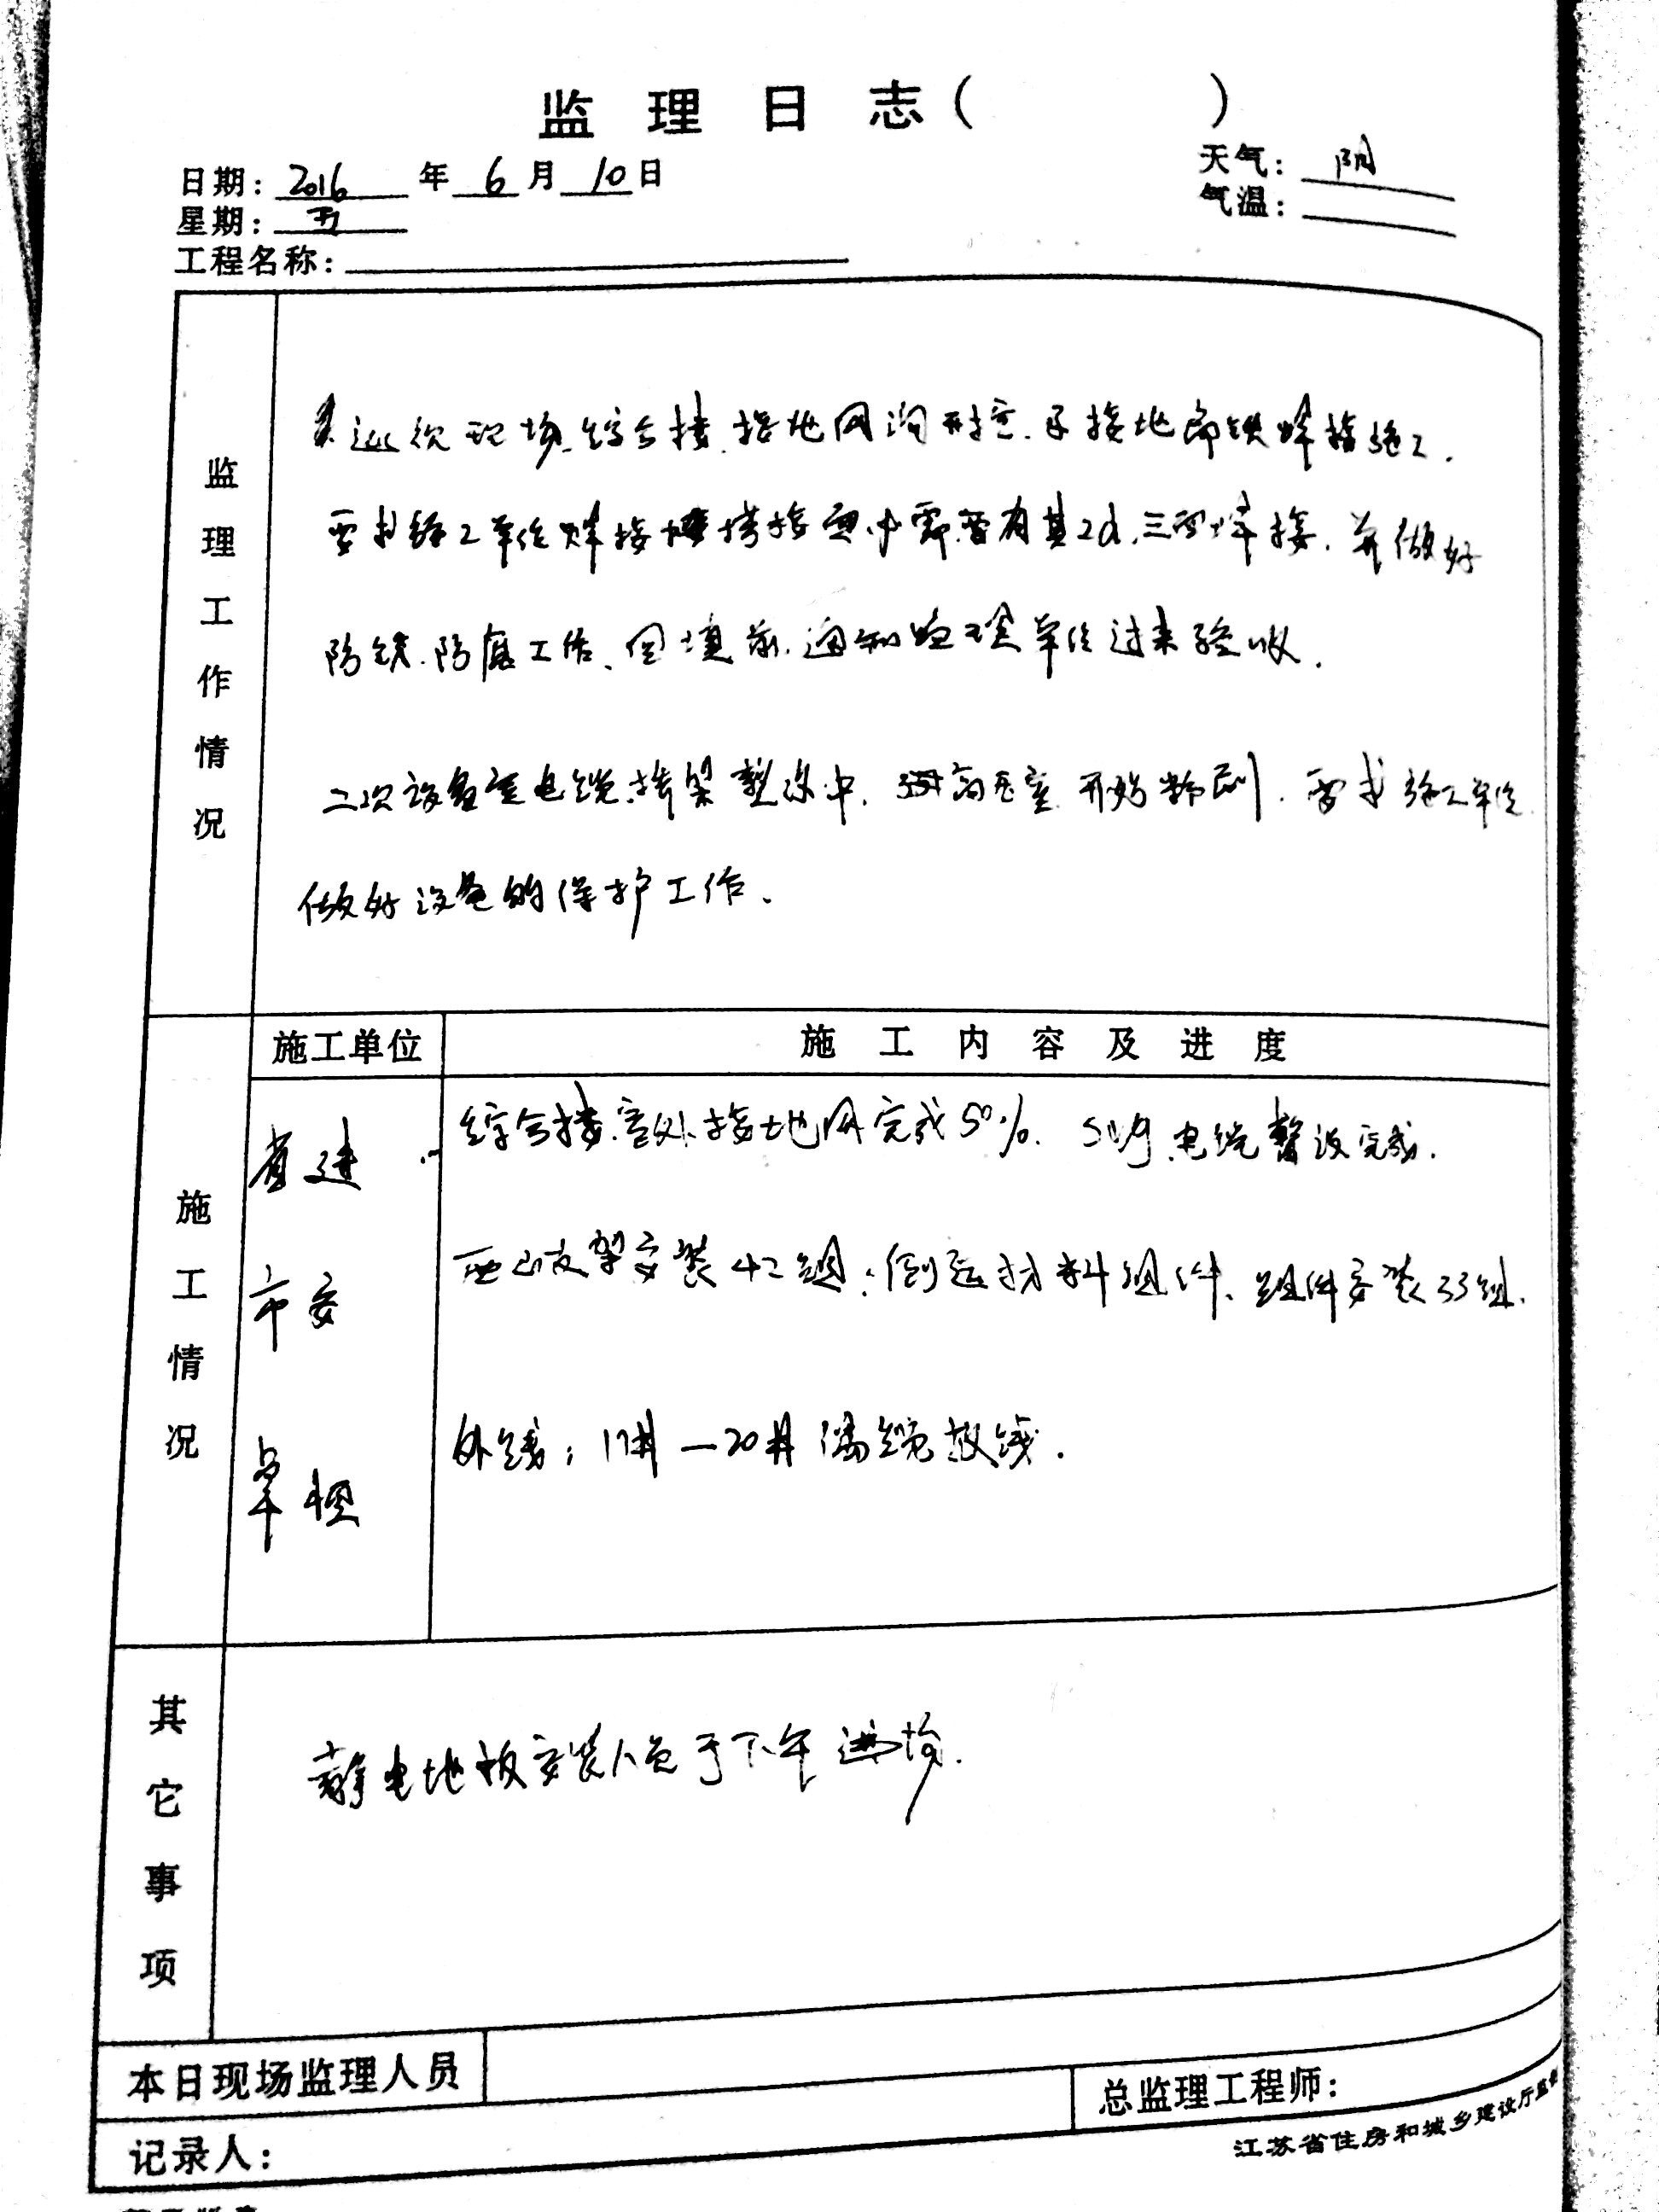 监理日志（　　）
日期：2016年6月10日
天气：阴
星期：五
气温：
工程名称：
监理工作情况
巡视现场，综合楼接地网沟开挖，及接地扁铁焊接施工，
要求施工单位焊接搭接面需其2d，三面焊接，并做好
防锈、防腐工作、回填前，通知监理单位过来验收。
二次设备室电缆桥架敷设中，高压室开始粉刷，要求施工单位
做好设备的保护工作。
施工情况
施工单位　施工内容及进度
省建　综合楼室外接地网完成50%，SVG电缆敷设完成。
市安　西山支架安装42组；倒运材料组件，组件安装33组，
外线；17#—20#
其它事项
静电地板安装人员于下午进场。
本日现场监理人员
总监理工程师：
记录人：
江苏省住房和城乡建设厅监